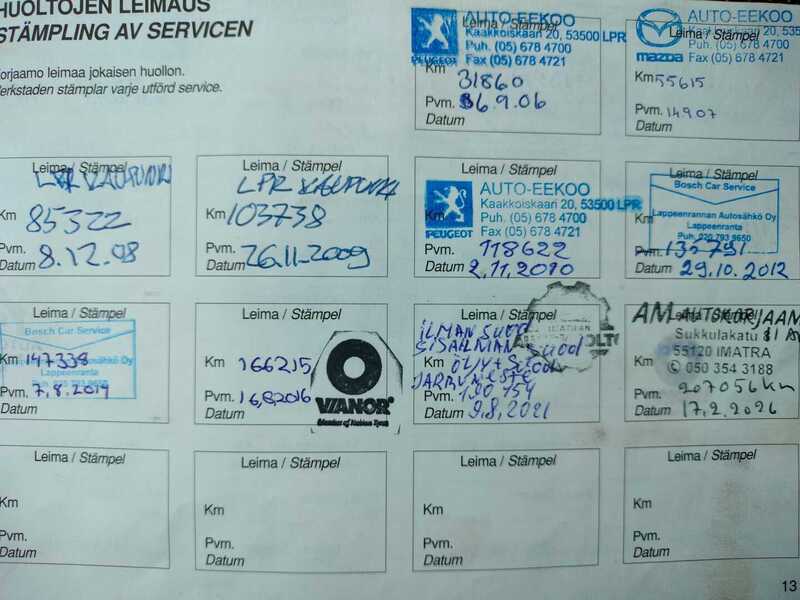 HUOLTOJEN LEIMAUS
STÄMPLING AV SERVICEN
Korjaamo leimaa jokaisen huollon.
Verkstaden stämplar varje utförd service.
Leima / Stämpel
PEUGEOT
AUTO-EEKOO
Kaakkoiskaari 20, 53500 LPR
Puh. (05) 678 4700
Fax (05) 678 4721
Km
31860
Pvm. 6.9.06
Datum
Leima / Stämpel
mazda
AUTO-EEKOO
Kaakkoiskaari 20, 53500
Puh. (05) 678 4700
Fax (05) 678 4721
Km 55615
Pvm. 14907
Datum
Leima / Stämpel
LPR KAUPUNKI
Km 85322
Pvm.
Datum 8.12.08
Leima / Stämpel
LPR KAUPUNKI
Km 103738
Pvm.
Datum 26.11.2009
Leima / Stämpel
PEUGEOT
AUTO-EEKOO
Kaakkoiskaari 20, 53500 LPR
Puh. (05) 678 4700
Fax (05) 678 4721
Km
Pvm. 118622
Datum 2.11.2010
Leima / Stämpel
Bosch Car Service
Lappeenrannan Autosähkö Oy
Lappeenranta
Puh. 020 793 9650
Km
Pvm. 135791
Datum 29.10.2012
Leima / Stämpel
Bosch Car Service
Lappeenrannan Autosähkö Oy
Lappeenranta
Km 147338
Pvm. 7.8.2014
Datum
Leima / Stämpel
Km 166215
Pvm. 16.8.2016
Datum
VIANOR
Member of Nokian Tyres
Leima / Stämpel
ILMAN SUOD
SISÄILMAN SUOD
Km ÖLJYT + SUOD
JARRUNESTE
Pvm. 190 154
Datum 9.8.2021
Leima / Stämpel
AM AUTOKORJAAMO
Sukkulakatu
55120 IMATRA
Km 050 354 3188
Pvm. 207056 km
Datum 17.2.2026
Leima / Stämpel
Km
Pvm.
Datum
Leima / Stämpel
Km
Pvm.
Datum
Leima / Stämpel
Km
Pvm.
Datum
Leima / Stämpel
Km
Pvm.
Datum
13